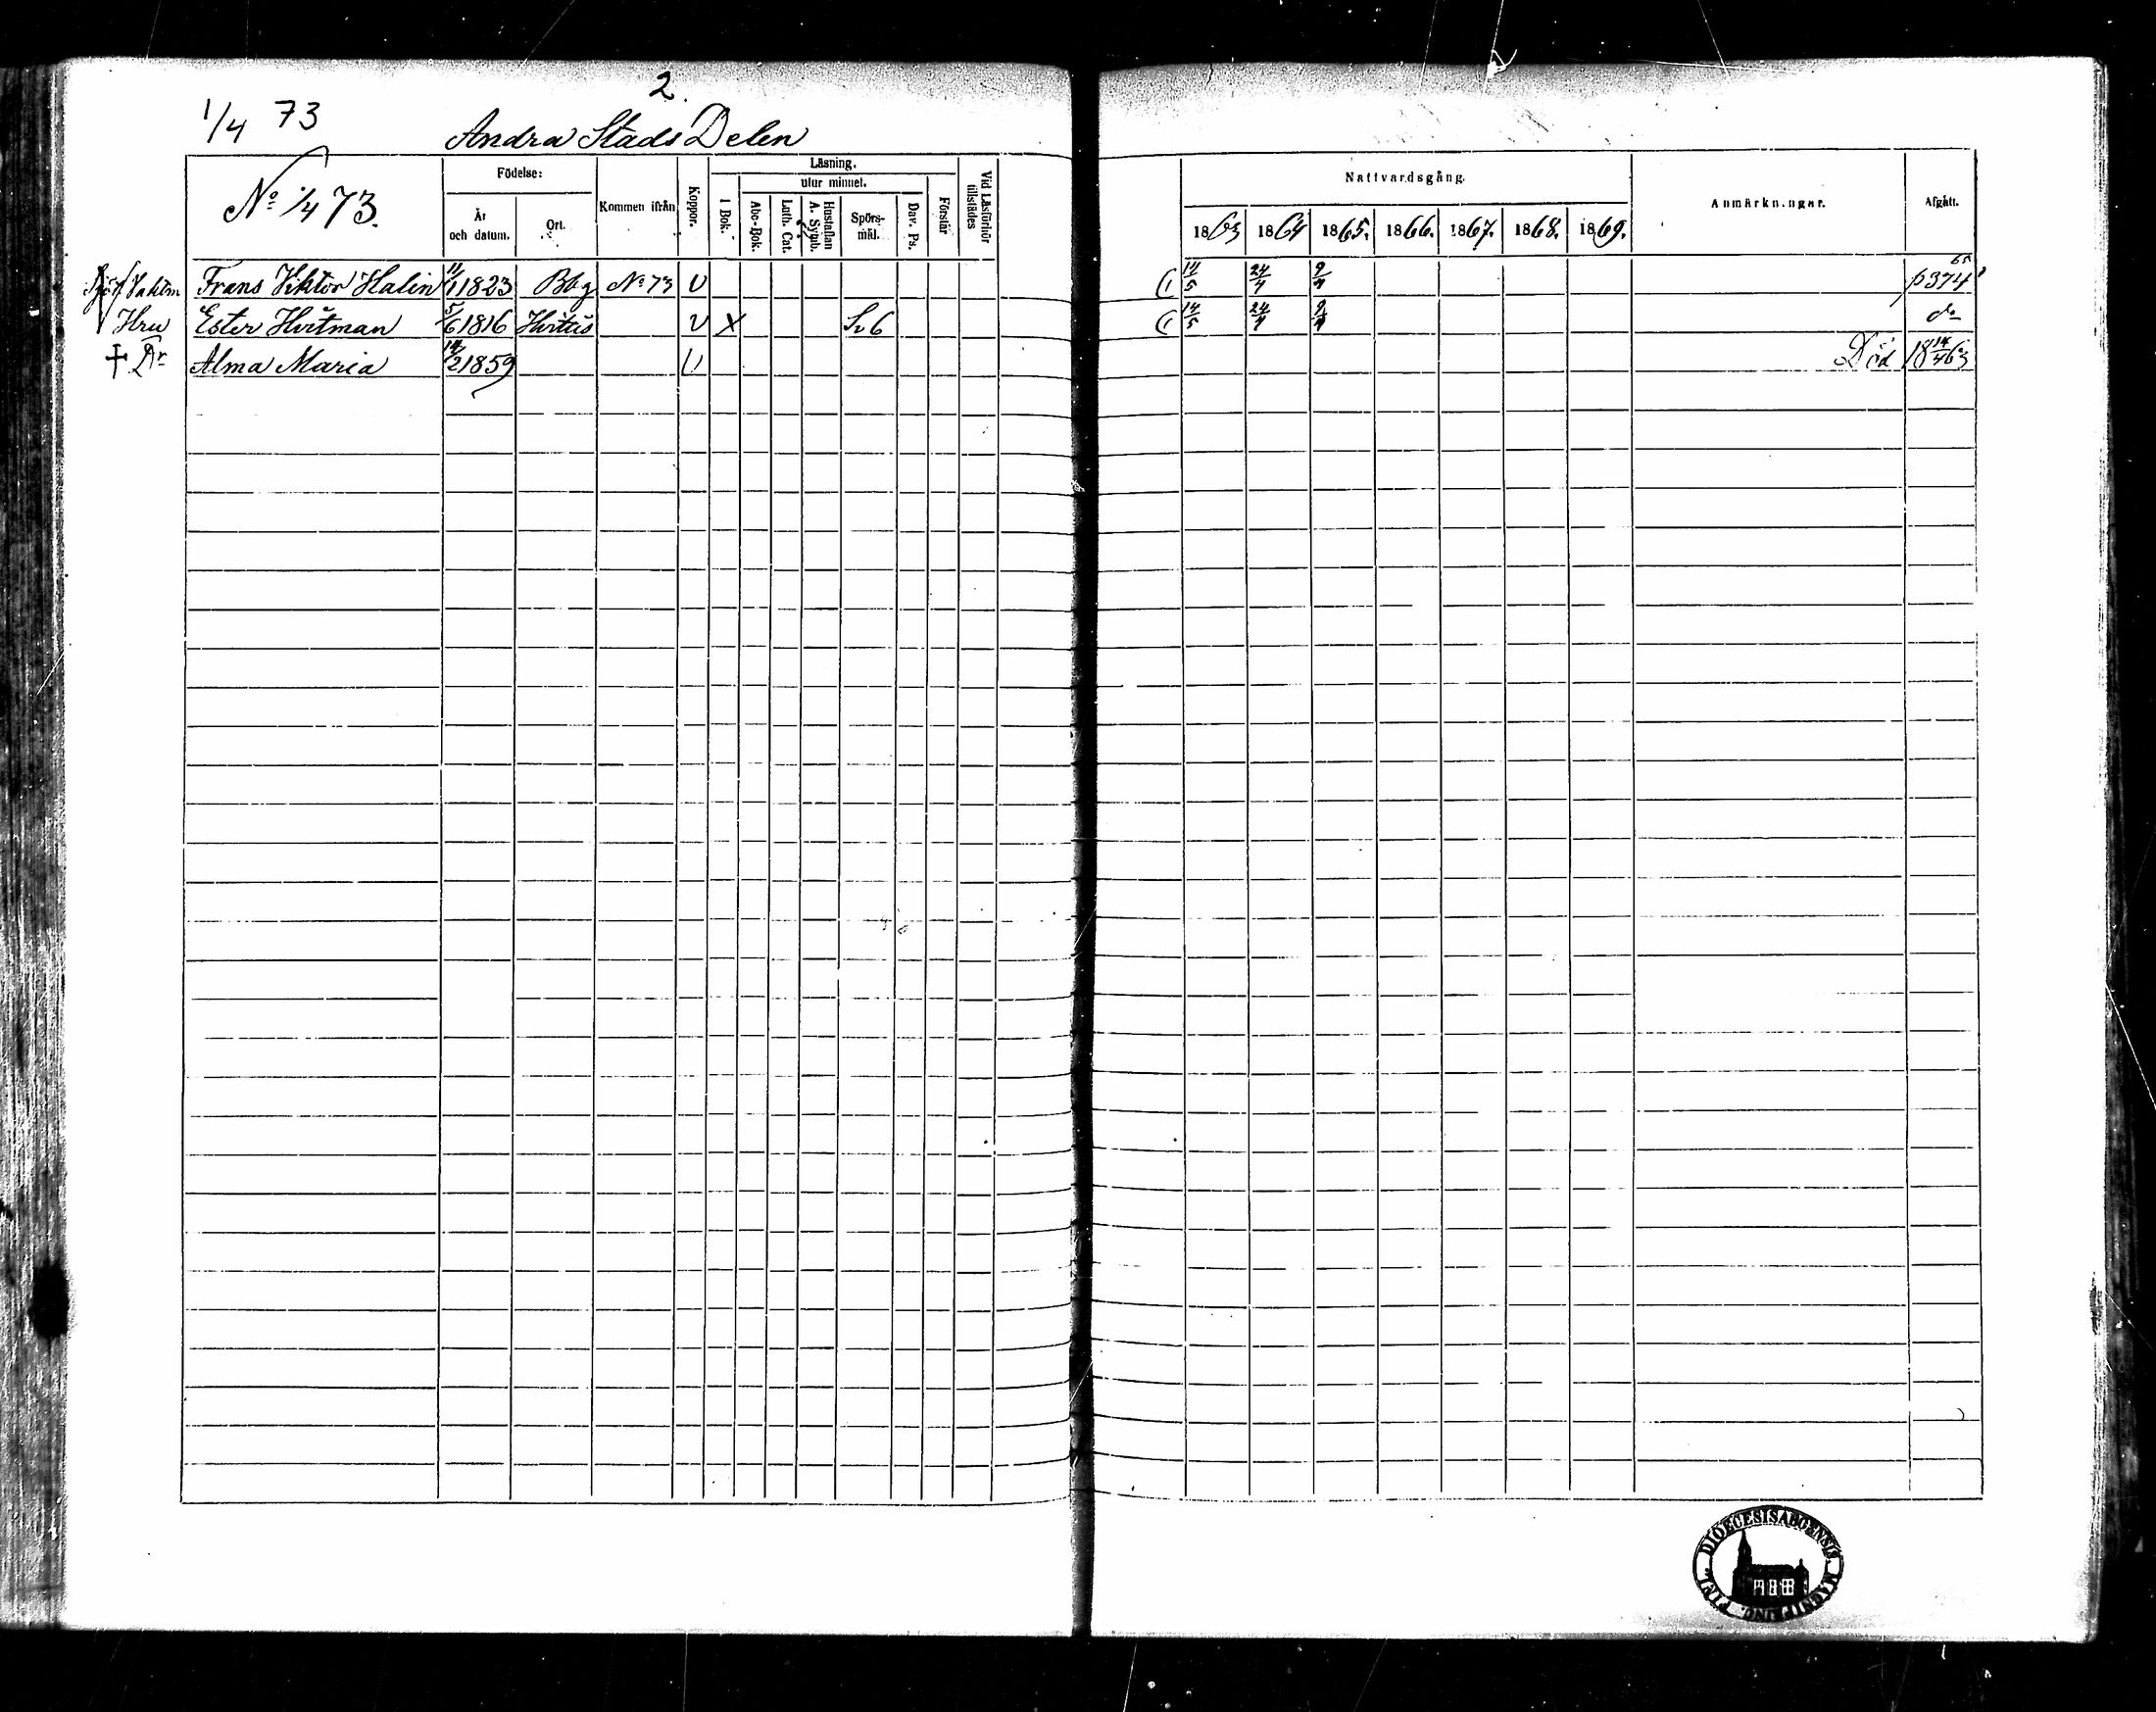 2.
1/4 73
Andra Stads Delen
No 1/4 73.
Födelse:
År och datum.
Ort.
Kommen ifrån
Koppor.
Läsning.
I Bok.
utur minnet.
Abc-Bok.
Luth. Cat.
Hustaflan A. Symb.
Spörs-mål.
Dav. Ps.
Förstår
Vid Läsförhör tillstädes
Nattvardsgång.
1863 1864 1865. 1866. 1867. 1868. 1869.
Anmärkningar.
Afgått.
Vaktm Frans Viktor Halin 11/1 1823 Bbg No 73 v 14/5 24/4 9/4 p 374
Hru Ester Hvitman 5/6 1816 Hvittis v x Sv 6 14/5 24/4 9/4 do
+ Dr Alma Maria 14/2 1859 v Död 18 14/4 63
DIOECESIS ABOENSIS MAGNI PRINC. FINL.